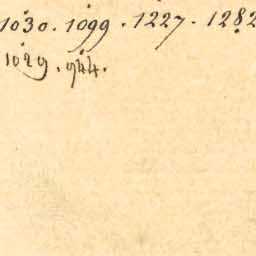 1030 . 1099 . 1227 . 1282
1029 . 944 .